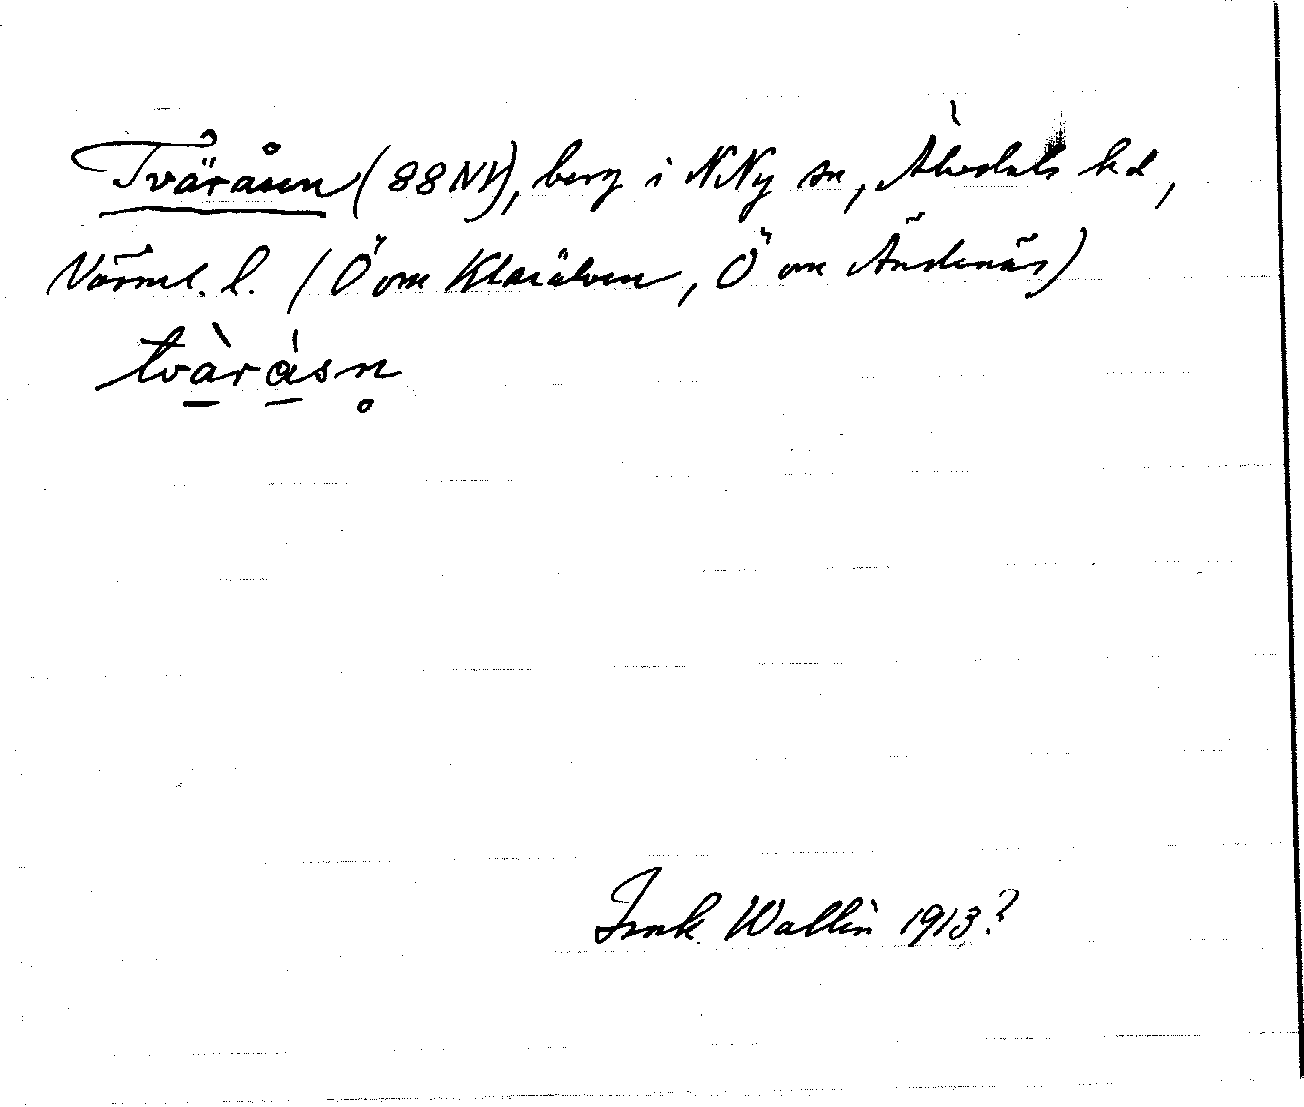 Tväråsen (88 NV), berg i N Ny sn, Älvdals hd,
Värml. l. (Ö om Klarälven, Ö om Ändenäs)
tvàrásn
Ink. Wallin 1913?